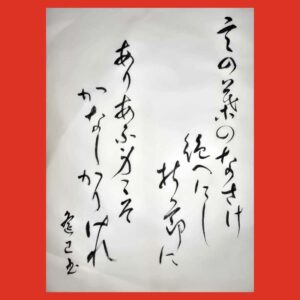 言の葉のなさけ
絶へにし
折節に
ありあふ身こそ
かなしかりけれ